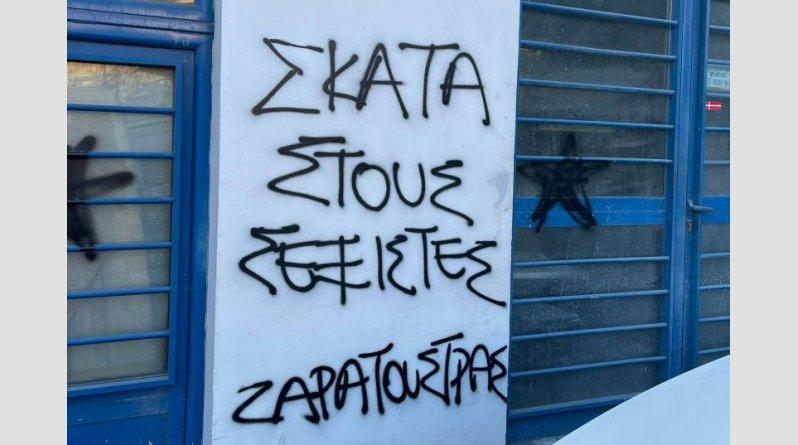 ΣΚΑΤΑ
ΣΤΟΥΣ
ΣΕΞΙΣΤΕΣ
ΖΑΡΑΤΟΥΣΤΡΑΣ